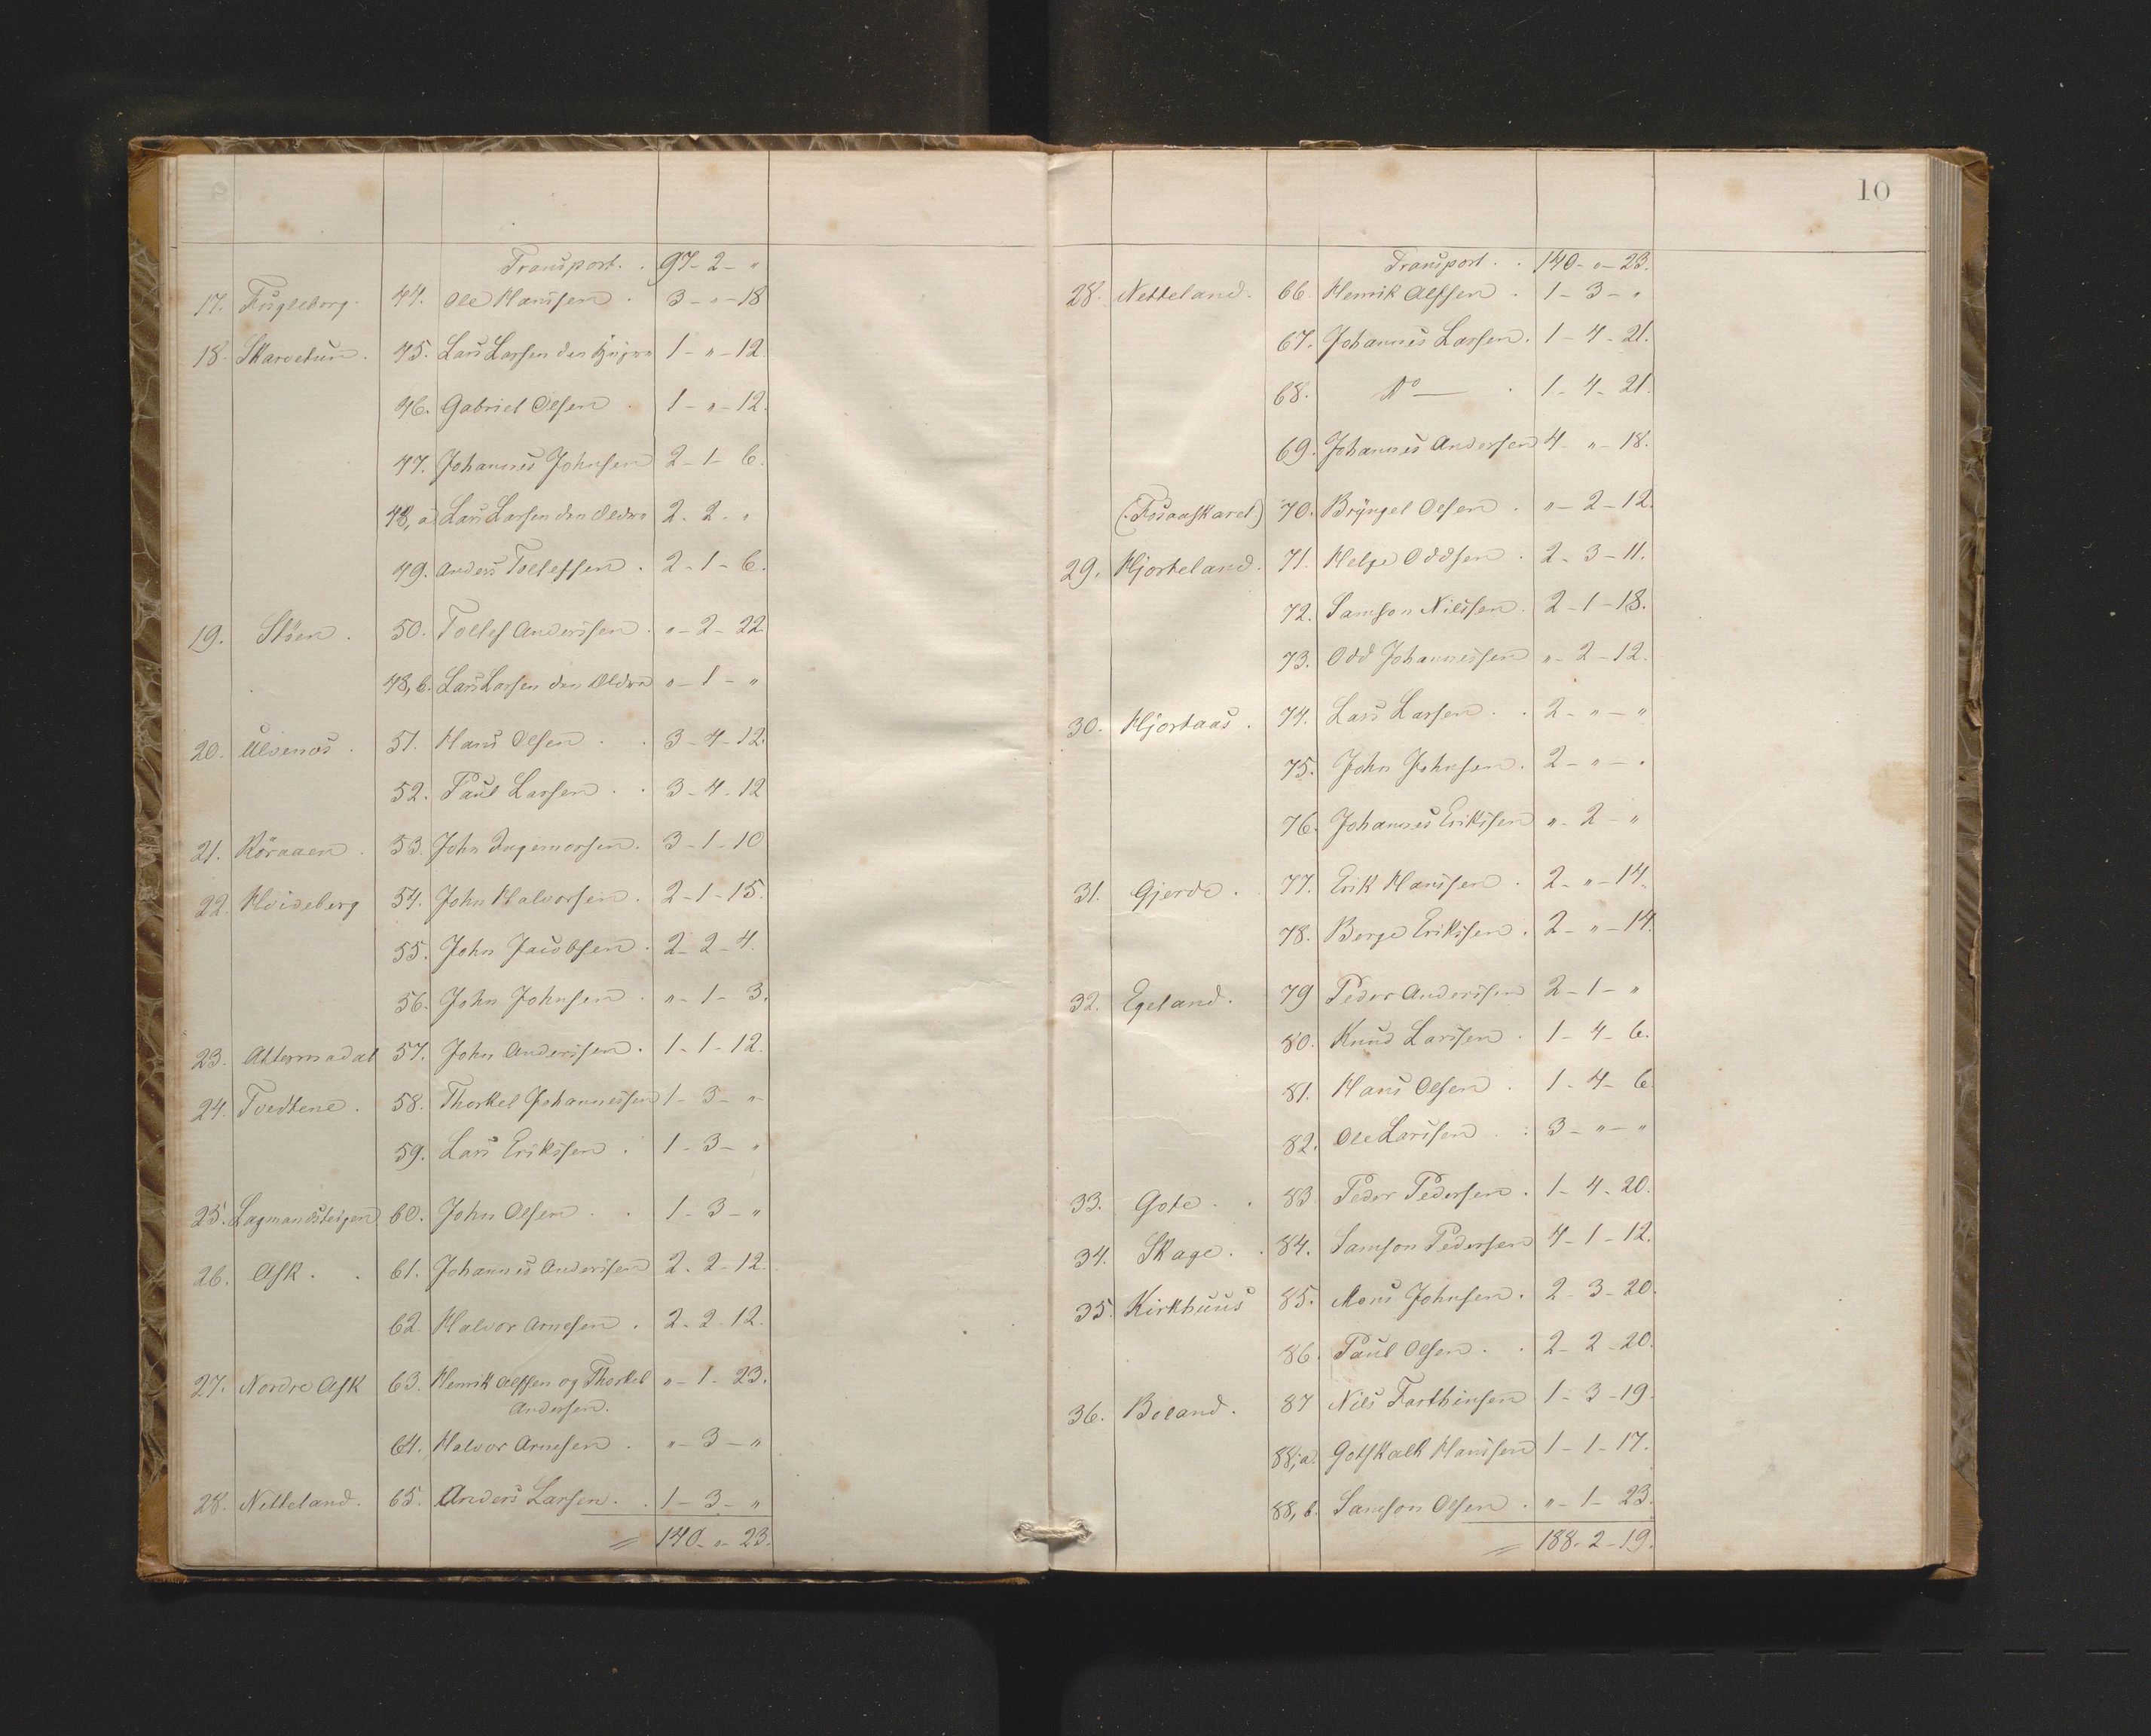 Transport. . 97-2- "
17. Fugleberg. 44. Ole Hanssen . 3- " -18
18. Skarvetun. 45. Lars Larsen den Yngre 1- " -12
46. Gabriel Olsen . 1- " -12.
47. Johannes Johnsen 2-1-6.
48, a Lars Larsen den Eldre 2-2- "
49. Anders Tollefsen . 2-1-6.
19. Stöen . 50. Tollef Anderssen . " -2-22
48, b. Lars Larsen den Eldre " -1- "
20. Ulvenos . 51. Hans Olsen . . 3-4-12.
52. Paul Larsen . . 3-4-12
21. Röraaen . 53. John Ingemorsen. 3-1-10
22. Hvideberg 54. John Halvorsen . 2-1-15.
55. John Jacobsen . 2-2-4.
56. John Johnsen . " -1-3.
23. Attermadal 57. John Anderssen . 1-1-12.
24. Tvedtene . 58. Thorkel Johannessen 1-3- "
59. Lars Erikssen . 1-3- "
25. Lagmandsteigen 60. John Olsen . . 1-3- "
26. Ask . . 61. Johannes Anderssen 2-2-12.
62. Halvor Arnesen . 2-2-12.
27. Nordre Ask 63. Henrik Alfsen og Thorkel " -1-23.
Andersen.
64. Halvor Arnesen . " -3- "
28. Netteland. 65. Anders Larsen . . 1-3- "
= 140- " -23.
10
Transport . . 140- " -23.
28. Netteland. 66. Henrik Alfsen . 1-3- "
67. Johannes Larsen. 1-4-21.
68. Do — . 1-4-21.
69. Johannes Andersen 4- " -18.
(Fosaaskaret) 70. Bryngel Olsen . " -2-12.
29. Hjorteland. 71. Helge Oddsen . 2-3-11.
72. Samson Nilssen . 2-1-18.
73. Odd Johannessen " -2-12.
30. Hjortaas . 74. Lars Larsen . . 2- " - "
75. John Johnsen . 2- " - "
76. Johannes Erikssen " -2- "
31. Gjerde . 77. Erik Hanssen . 2- " -14.
78. Berge Erikssen . 2- " -14.
32. Egeland. 79 Peder Anderssen 2-1- "
80. Knud Larssen . 1-4-6.
81. Hans Olsen . 1-4-6
82. Ole Larssen . : 3- " - "
33. Gote . . 83 Peder Pedersen . 1-4-20.
34. Skage . . 84. Samson Pedersen 4-1-12.
35. Kirkhuus 85. Mons Johnsen . 2-3-20.
86. Paul Olsen . . 2-2-20.
36. Boland. 87 Nils Farthinsen 1-3-19.
88, a. Gotskalk Hanssen 1-1-17.
88, b. Samson Olsen . " -1-23.
= 188-2-19.